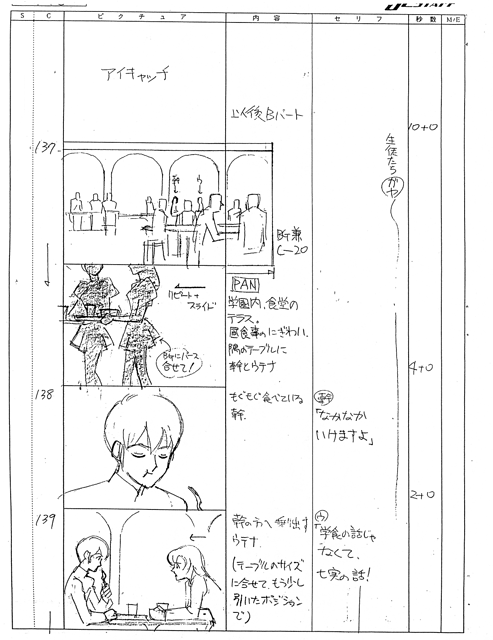 J.C.STAFF
S C ピクチュア 内容 セリフ 秒数 M/E
アイキャッチ
以後Bパート
10+0
137
生徒たちガヤ
幹
ウ
BG兼
C-20
PAN
リピート+
スライド
学園内、食堂の
テラス。
昼食事のにぎわい。
隅のテーブルに
幹とウテナ
BGにパース
合せて!
4+0
138
もぐもぐ食べている
幹。
幹
「なかなか
いけますよ」
2+0
139
幹の方へ乗り出す
ウテナ
(テーブルのサイズ
に合せて、もう少し
引いたポジション
で)
ウ
「学食の話じゃ
なくて、
七実の話!